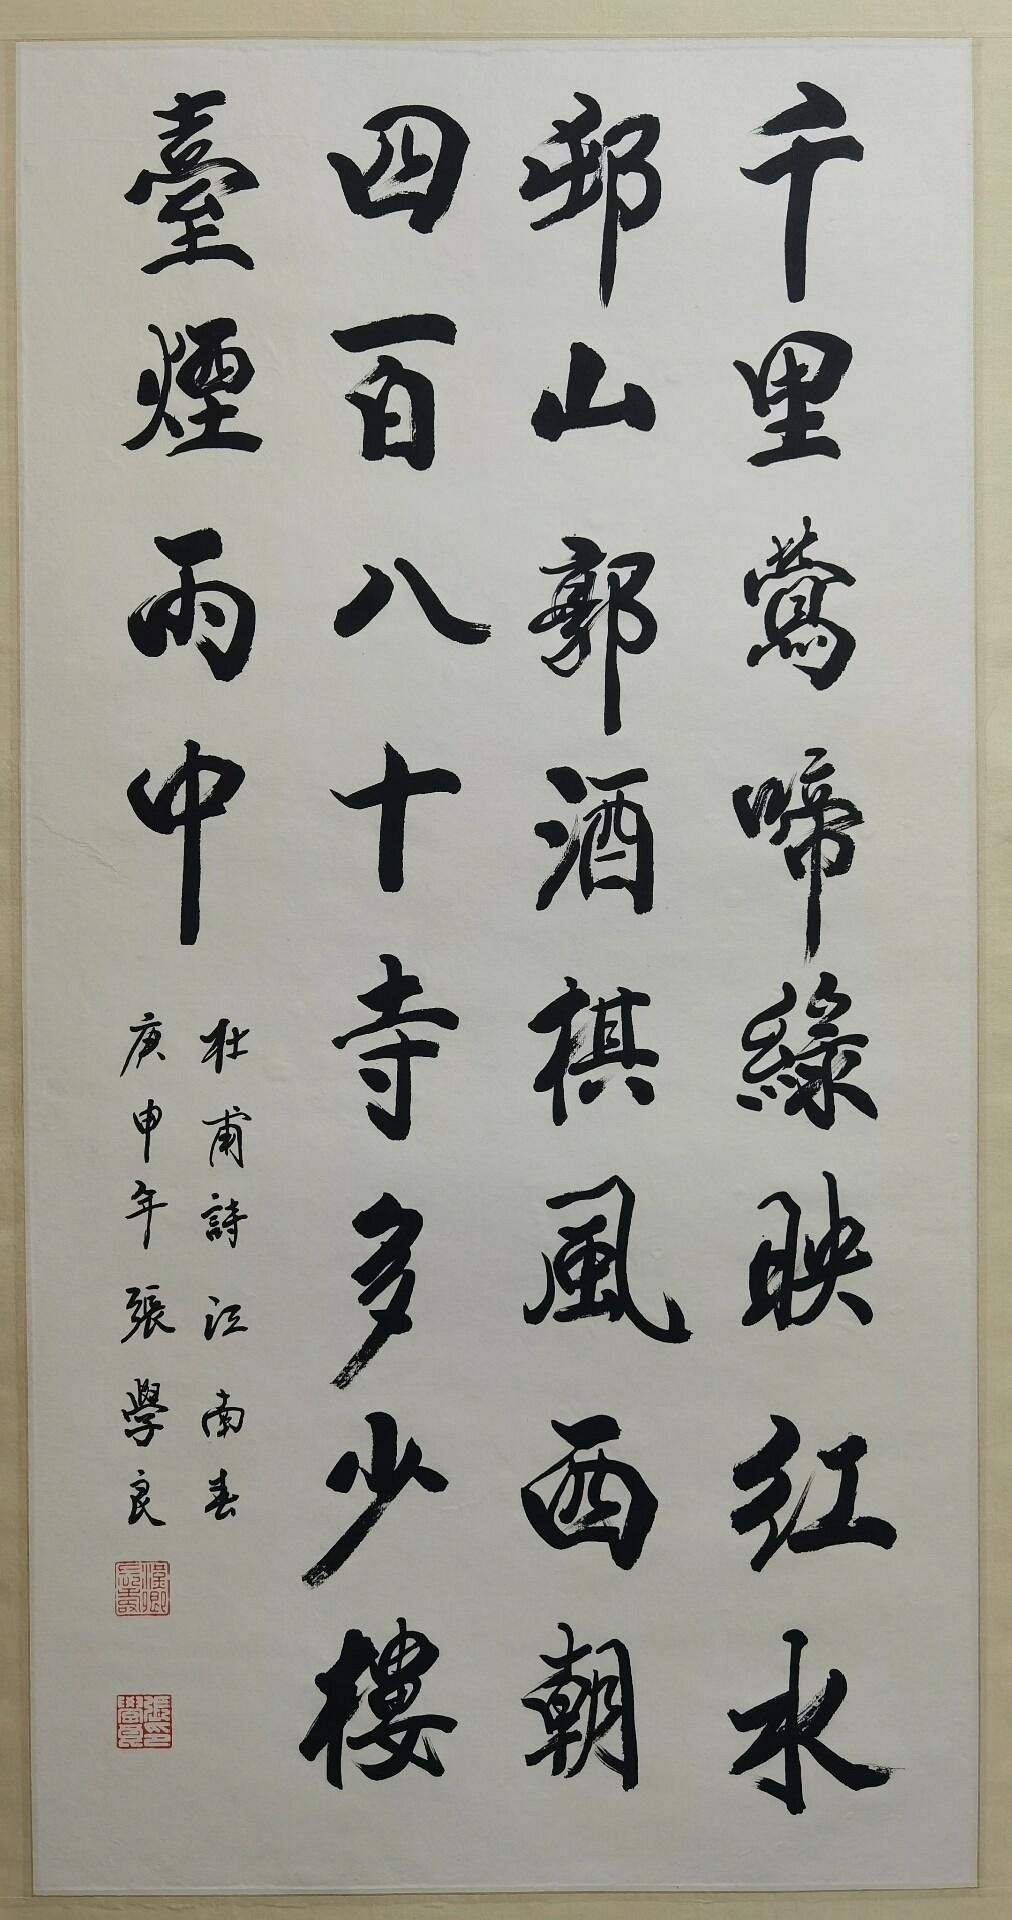 千里鶯啼綠映紅水
邨山郭酒棋風西朝
四百八十寺多少樓
臺煙雨中
杜甫詩江南春
庚申年張學良
漢卿
張學良印